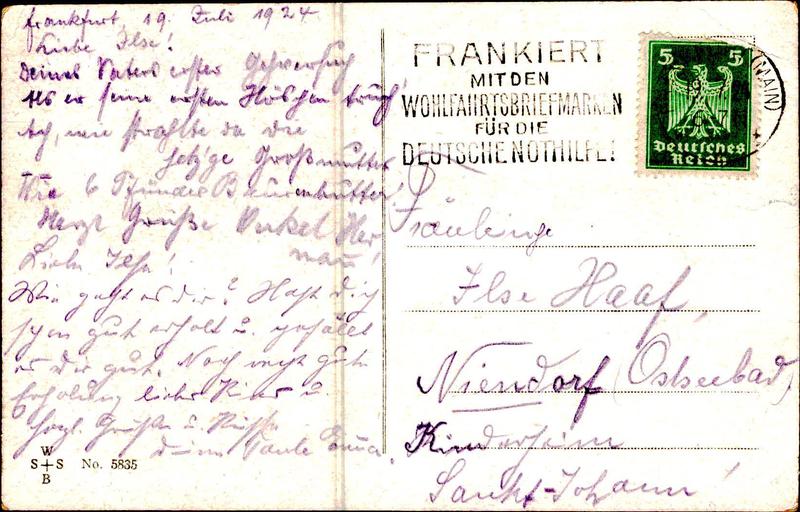 Frankfurt 19. Juli 1924
Liebe Ilse!
Deines Vaters erster Gehversuch
Als er seine ersten Höschen trug!
Ach, wie strahlte da die
jetz'ge Großmutter
Wie 6 Pfunder Bauernbutter!
Herzl Grüße Onkel Her-
mann!
Liebe Ilse!
Wie geht es dir? Hast dich
schon gut erholt u. gefällt
es dir gut. Noch recht gute
Erholung liebes Kind u.
herzl. Grüße u. Küsse
deine Tante Emma.
W
S+S No. 5835
B
FRANKIERT
MIT DEN
WOHLFAHRTSBRIEFMARKEN
FÜR DIE
DEUTSCHE NOTHILFE!
(MAIN)
5 5
Deutsches
Reich
Fräulein
Ilse Haaf,
Niendorf (Ostseebad)
Kinderheim
Sankt-Johann!